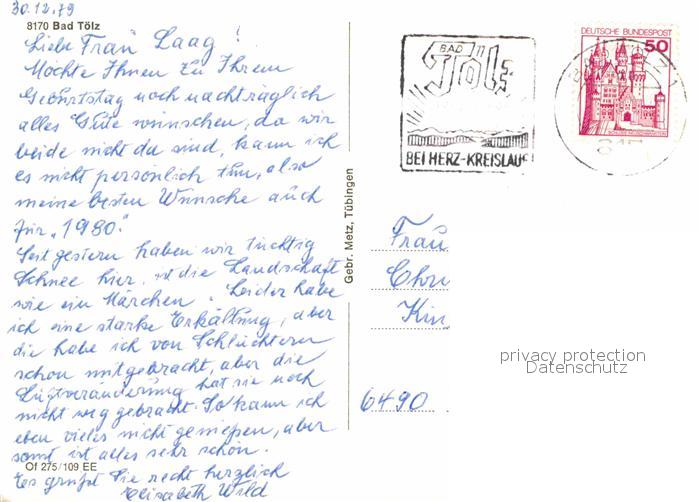 30.12.79
8170 Bad Tölz
Liebe Frau Laag!
Möchte Ihnen zu Ihrem
Geburtstag noch nachträglich
alles Gute wünschen, da wir
beide nicht da sind, kann ich
es nicht persönlich tun, also
meine besten Wünsche auch
für "1980."
Seit gestern haben wir tüchtig
Schnee hier, ist die Landschaft
wie ein Märchen. Leider habe
ich eine starke Erkältung, aber
die habe ich von Schlüchtern
schon mitgebracht, aber die
Luftveränderung hat sie noch
nicht weg gebracht. So kann ich
eben vieles nicht genießen, aber
somt ist alles sehr schön.
Of 275/109 EE
Es grüßt Sie recht herzlich
Elisabeth Wild
Gebr. Metz, Tübingen
BAD
TÖLZ
BEI HERZ-KREISLAUF
DEUTSCHE BUNDESPOST
50
Frau
Chri
Kin
privacy protection
Datenschutz
6490